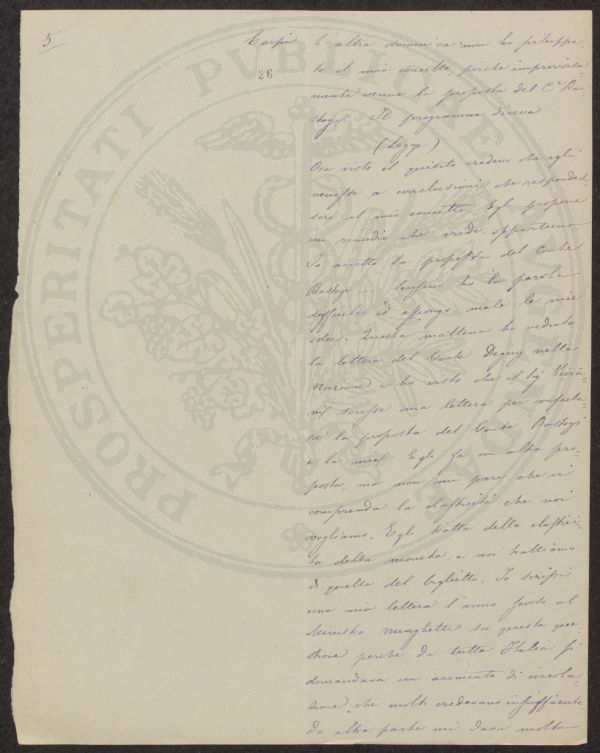 5
26
Carpi L'altra domenica non ho sviluppa-
to il mio concetto, perche improvvisa-
mente venne la proposta del C.e Ba-
stogi. Il programma diceva
(Legge)
Ora visto il quesito credeva che egli
venisse a conclusioni che rispondes-
sero al mio concetto. Egli propone
un rimedio che crede opportuno.
Io accetto la proposta del Conte
Bastogi ho la parola
difficile ed espongo male le mie
idee. Questa mattina ho veduto
la lettera del Conte Digny nella
Nazione e ho visto che il Sig
scrisse una lettera per confuta-
re la proposta del Conte Bastogi
e la mia. Egli fa un'altra pro-
posta, ma non mi pare che ei
comprenda la elasticità che noi
vogliamo. Egli tratta della elastici-
tà della moneta, e noi trattiamo
di quella del biglietto. Io scrissi
una mia lettera l'anno scorso al
Ministro Minghetti su questa que-
stione perche da tutta Italia si
domandava un aumento di circola-
zione, che molti credevano insufficiente
Da altra parte mi dava molta
PROSPERITATI PVBLICAE